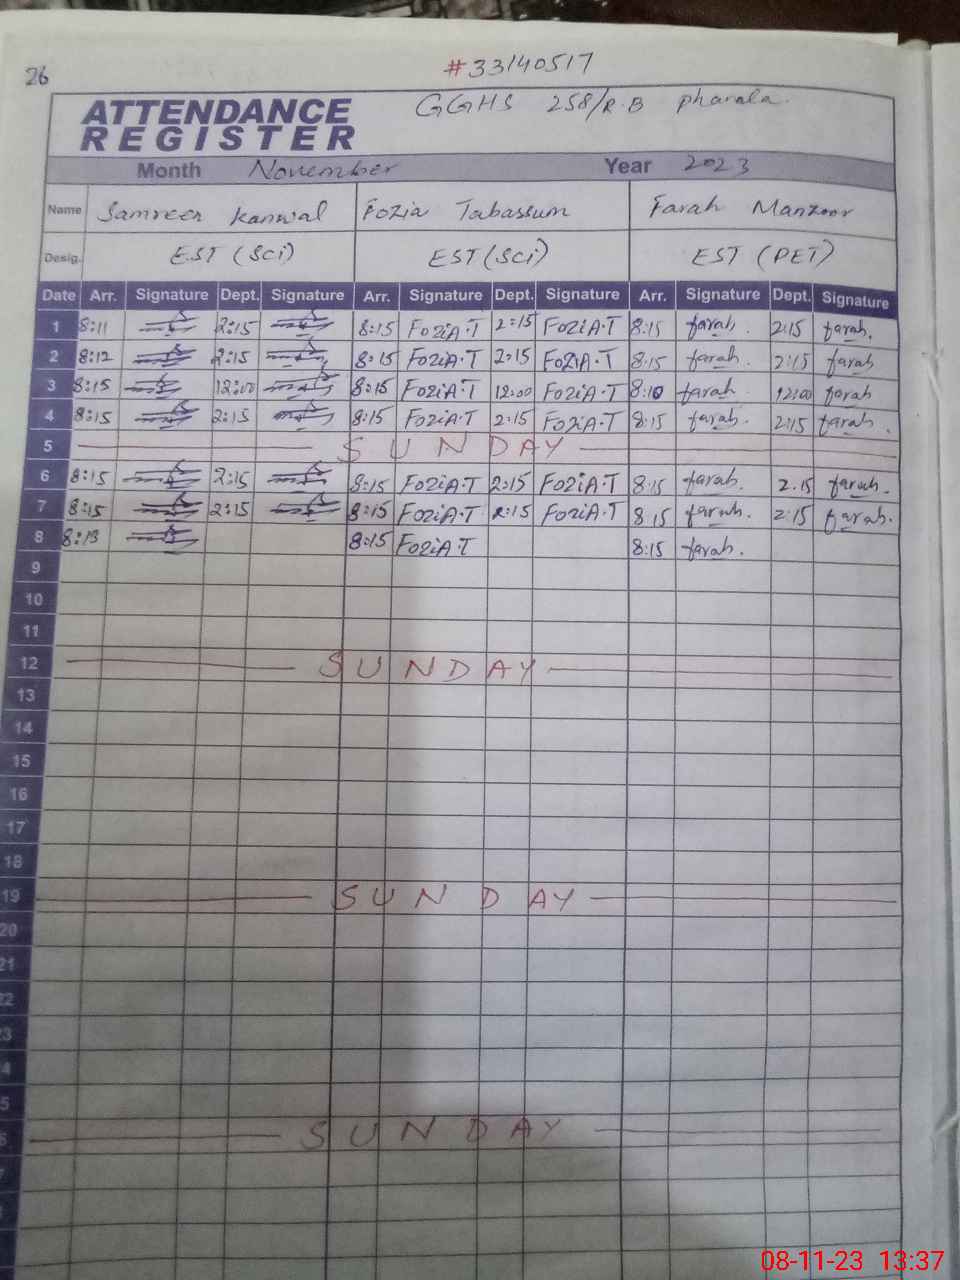 26
#33140517
GGHS 258/R.B pharala.
ATTENDANCE
REGISTER
Month November Year 2023
Name Samreen Kanwal Fozia Tabassum Farah Manzoor
Desig. EST (Sci) EST (Sci) EST (PET)
Date Arr. Signature Dept. Signature Arr. Signature Dept. Signature Arr. Signature Dept. Signature
1 8:11 2:15 8:15 FoziA.T 2:15 FoziA.T 8:15 farah. 2:15 farah.
2 8:12 2:15 8:15 FoziA.T 2:15 FoziA.T 8:15 farah. 2:15 farah
3 8:15 12:00 8:15 FoziA.T 12:00 FoziA.T 8:10 farah. 12:00 farah
4 8:15 2:15 8:15 FoziA.T 2:15 FoziA.T 8:15 farah. 2:15 farah.
5 SUNDAY
6 8:15 2:15 8:15 FoziA.T 2:15 FoziA.T 8:15 farah. 2.15 farah.
7 8:15 2:15 8:15 FoziA.T 2:15 FoziA.T 8:15 farah. 2:15 farah.
8 8:13 8:15 FoziA.T 8:15 farah.
9
10
11
12 SUNDAY
13
14
15
16
17
18
19 SUNDAY
20
21
22
23
4
5
6 SUNDAY
7
08-11-23 13:37